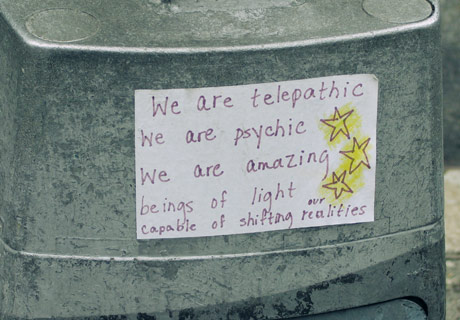 We are telepathic
We are psychic
We are amazing
beings of light
capable of shifting our realities